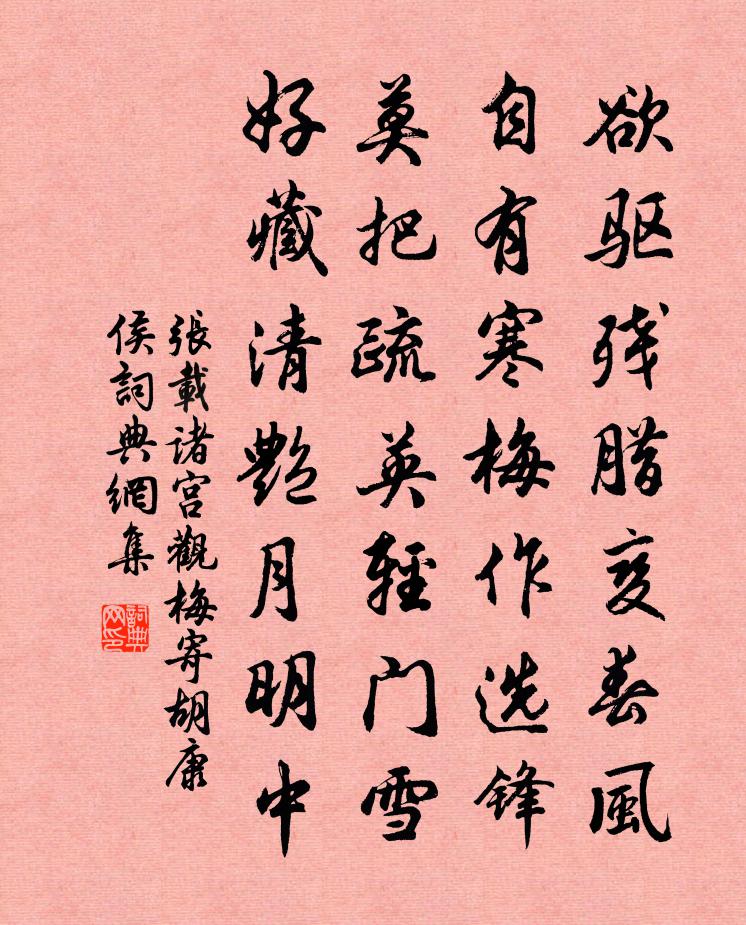 欲驱残腊变春風
自有寒梅作选锋
莫把疏英輕门雪
好藏清艷月明中
張載诸宫觀梅寄胡康
侯詞典網集
詞典网印